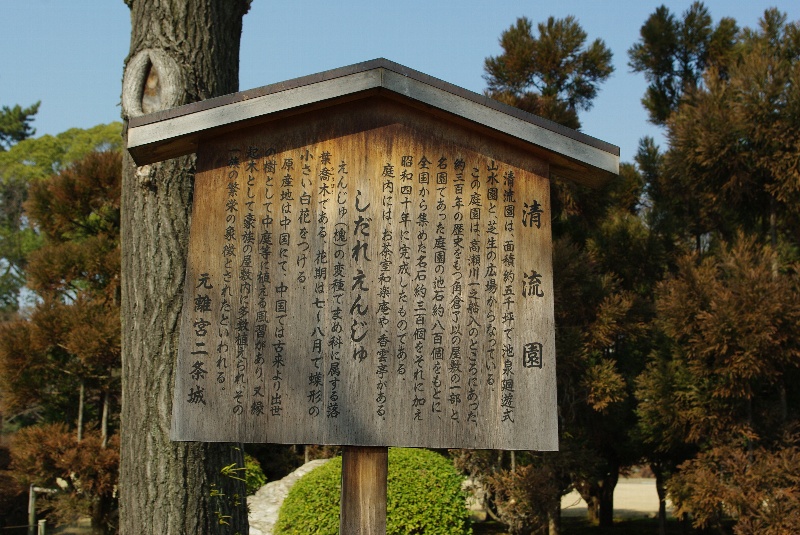 清流園
清流園は、面積約五千坪で、池泉廻遊式
山水園と、芝生の広場からなっている。
この庭園は、高瀬川一之船入のところにあった、
約三百年の歴史をもつ角倉了以の屋敷の一部と
名園であった庭園の池石約八百個をもとに、
全国から集めた名石約三百個をそれに加え
昭和四十年に完成したものである。
庭内には、お茶室和楽庵や香雲亭がある。
しだれえんじゅ
えんじゅ(槐)の変種でまめ科に属する落
葉喬木である。花期は七〜八月で蝶形の
小さい白花をつける。
原産地は中国にて、中国では古来より出世
の樹として中庭等に植える風習があり、又縁
起木として豪族の屋敷内に多数植えられ、その
一族の繁栄の象徴とされたといわれる。
元離宮二条城